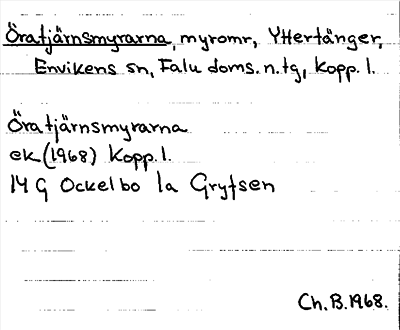 Öratjärnsmyrarna, myromr, Yttertänger,
Envikens sn, Falu doms. n. tg, Kopp. l.
Öratjärnsmyrarna
ek (1968) Kopp. l.
14 G Ockelbo 1a Grytsen
Ch. B. 1968.